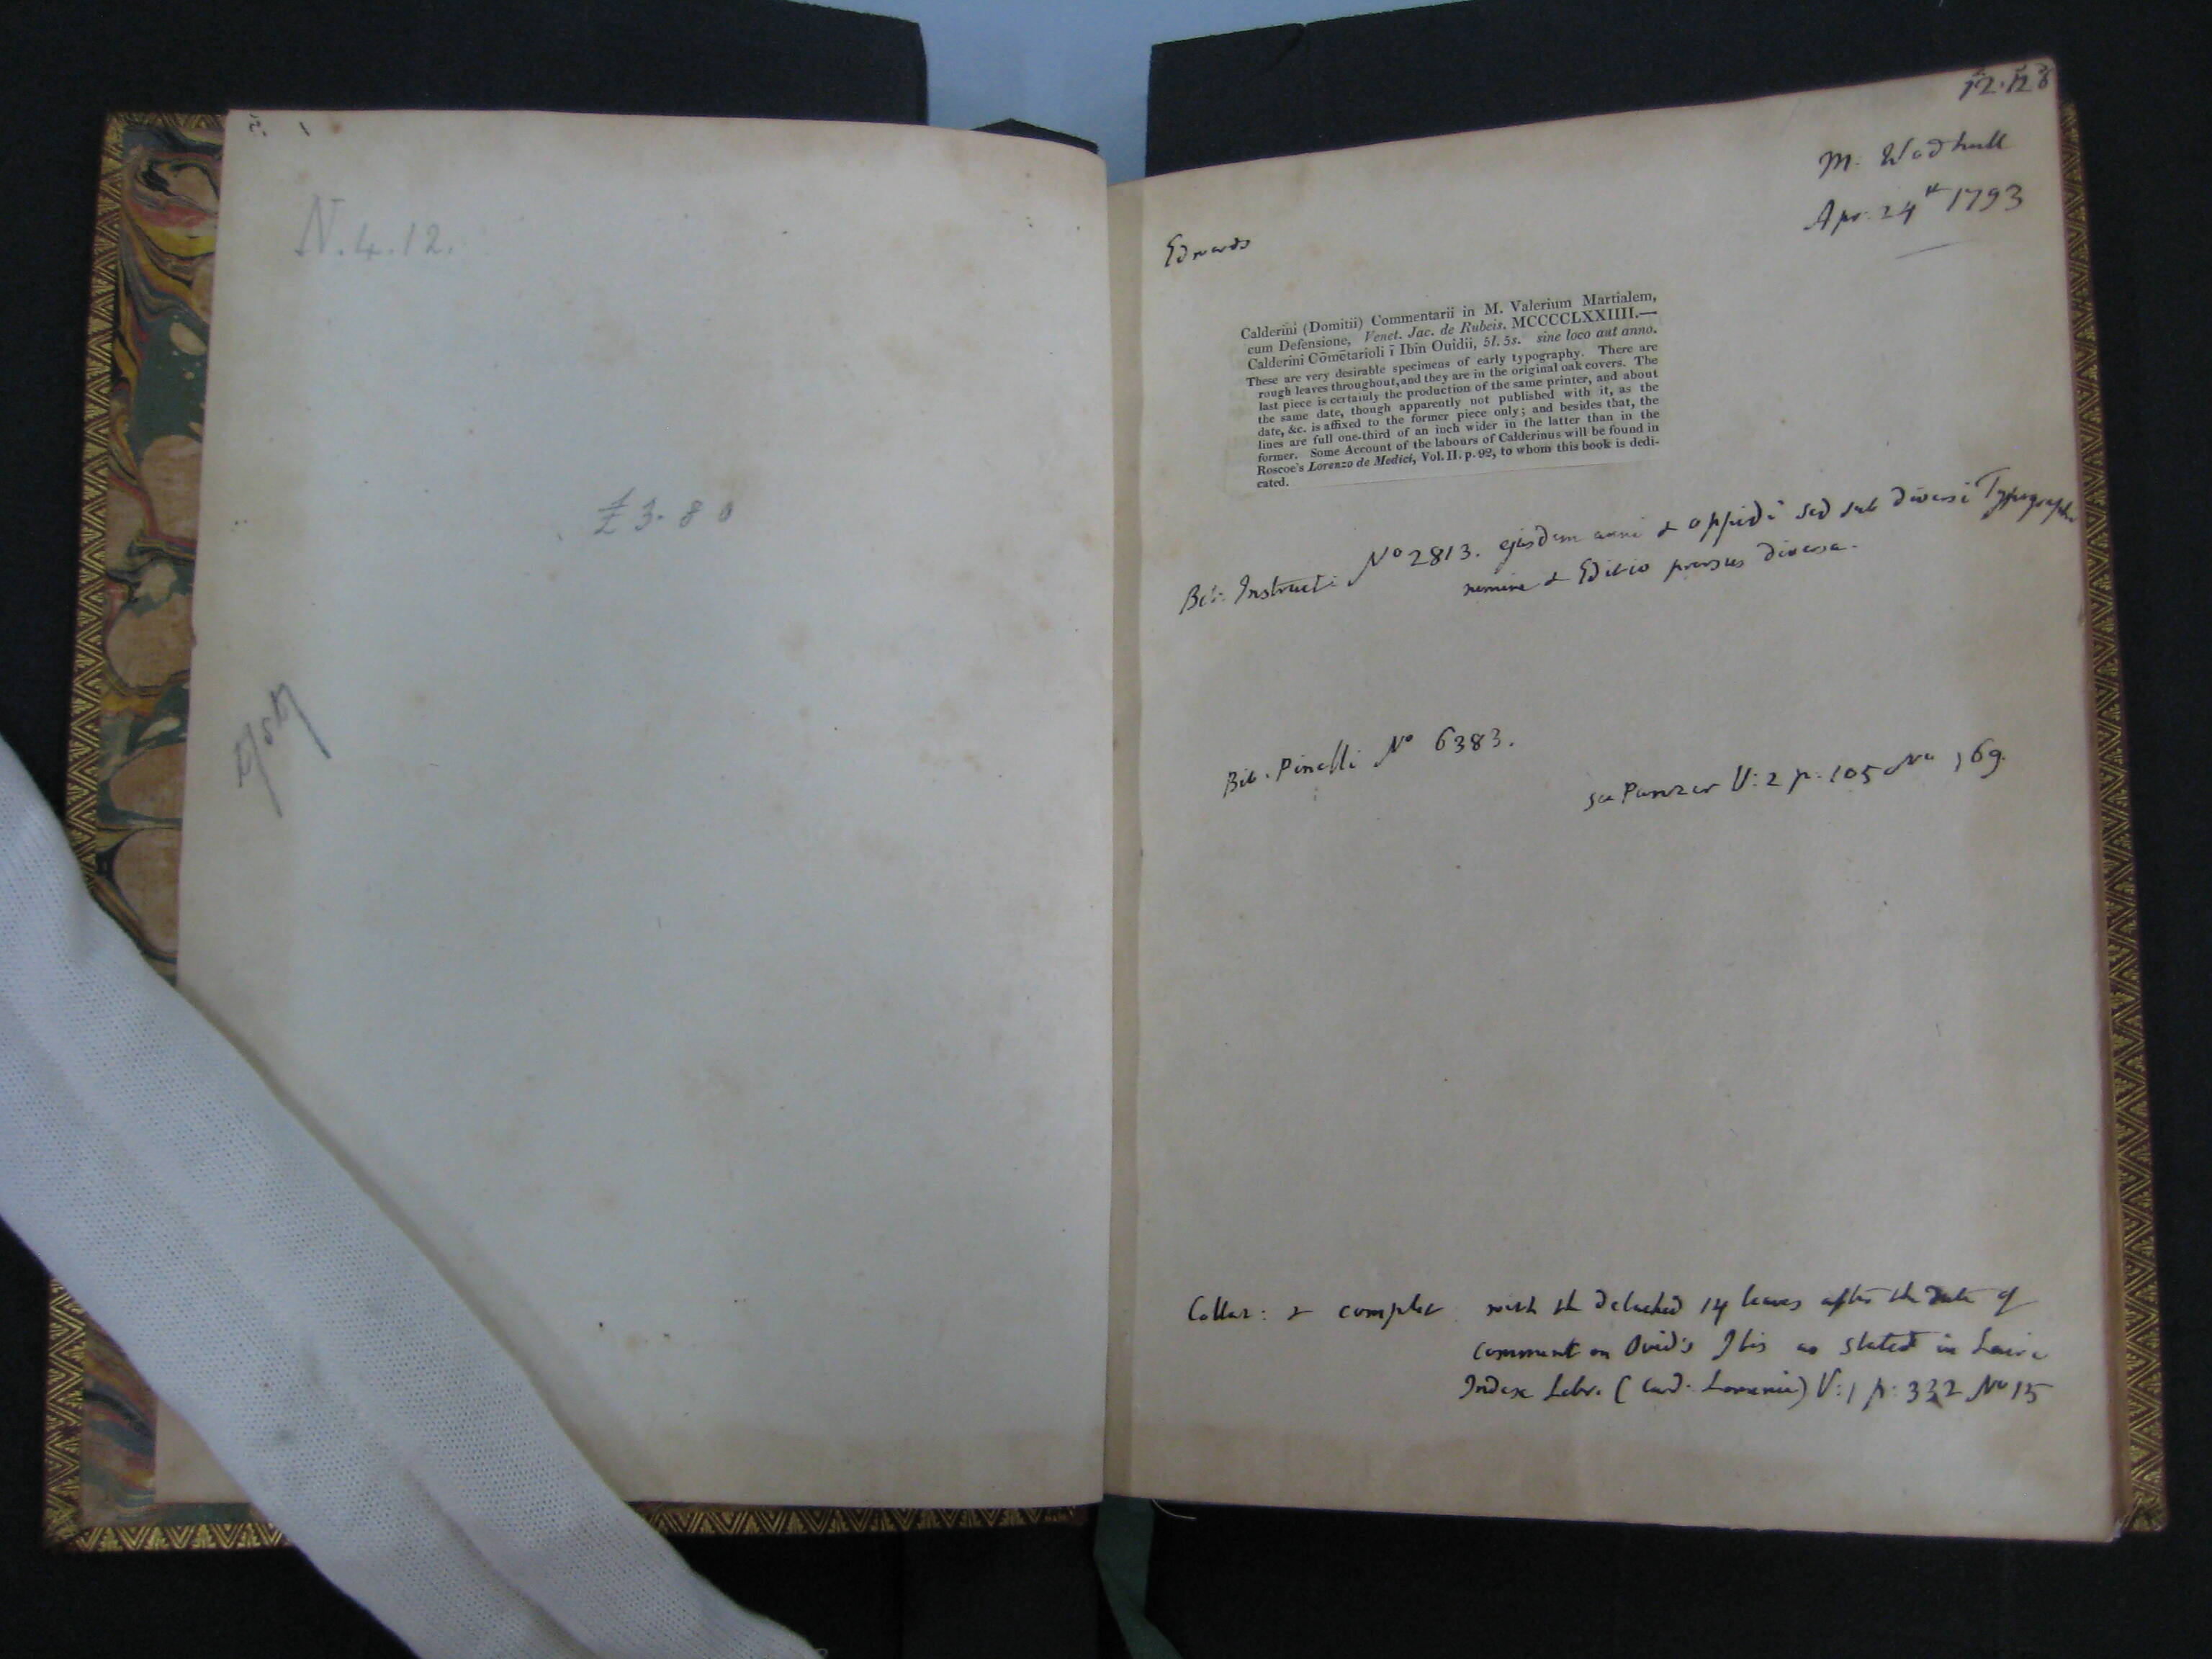 N.4.12.
£3.8 0
12.12
M: Wodhull
Apr: 24th 1793
Edwards
Calderini (Domitii) Commentarii in M. Valerium Martialem,
cum Defensione, Venet. Jac. de Rubeis. MCCCCLXXIIII.—
Calderini Cōmētarioli ī Ibin Ouidii, 5l. 5s. sine loco aut anno.
These are very desirable specimens of early typography. There are
rough leaves throughout, and they are in the original oak covers. The
last piece is certainly the production of the same printer, and about
the same date, though apparently not published with it, as the
date, &c. is affixed to the former piece only; and besides that, the
lines are full one-third of an inch wider in the latter than in the
former. Some Account of the labours of Calderinus will be found in
Roscoe's Lorenzo de Medici, Vol. II. p. 92, to whom this book is dedi-
cated.
Bib: Instructi No 2813. ejusdem anni & oppidi sed sub diversi Typographi
nomine & Editio prorsus diversa.
Bib. Pinelli No 6383.
see Panzer V: 2 p: 105 No 169.
Collat: & complet with the detached 14 leaves after the date of
comment on Ovid's Ibis as stated in Laire
Index Libr. (Card. Lomenie) V: 1 p: 332 No 15